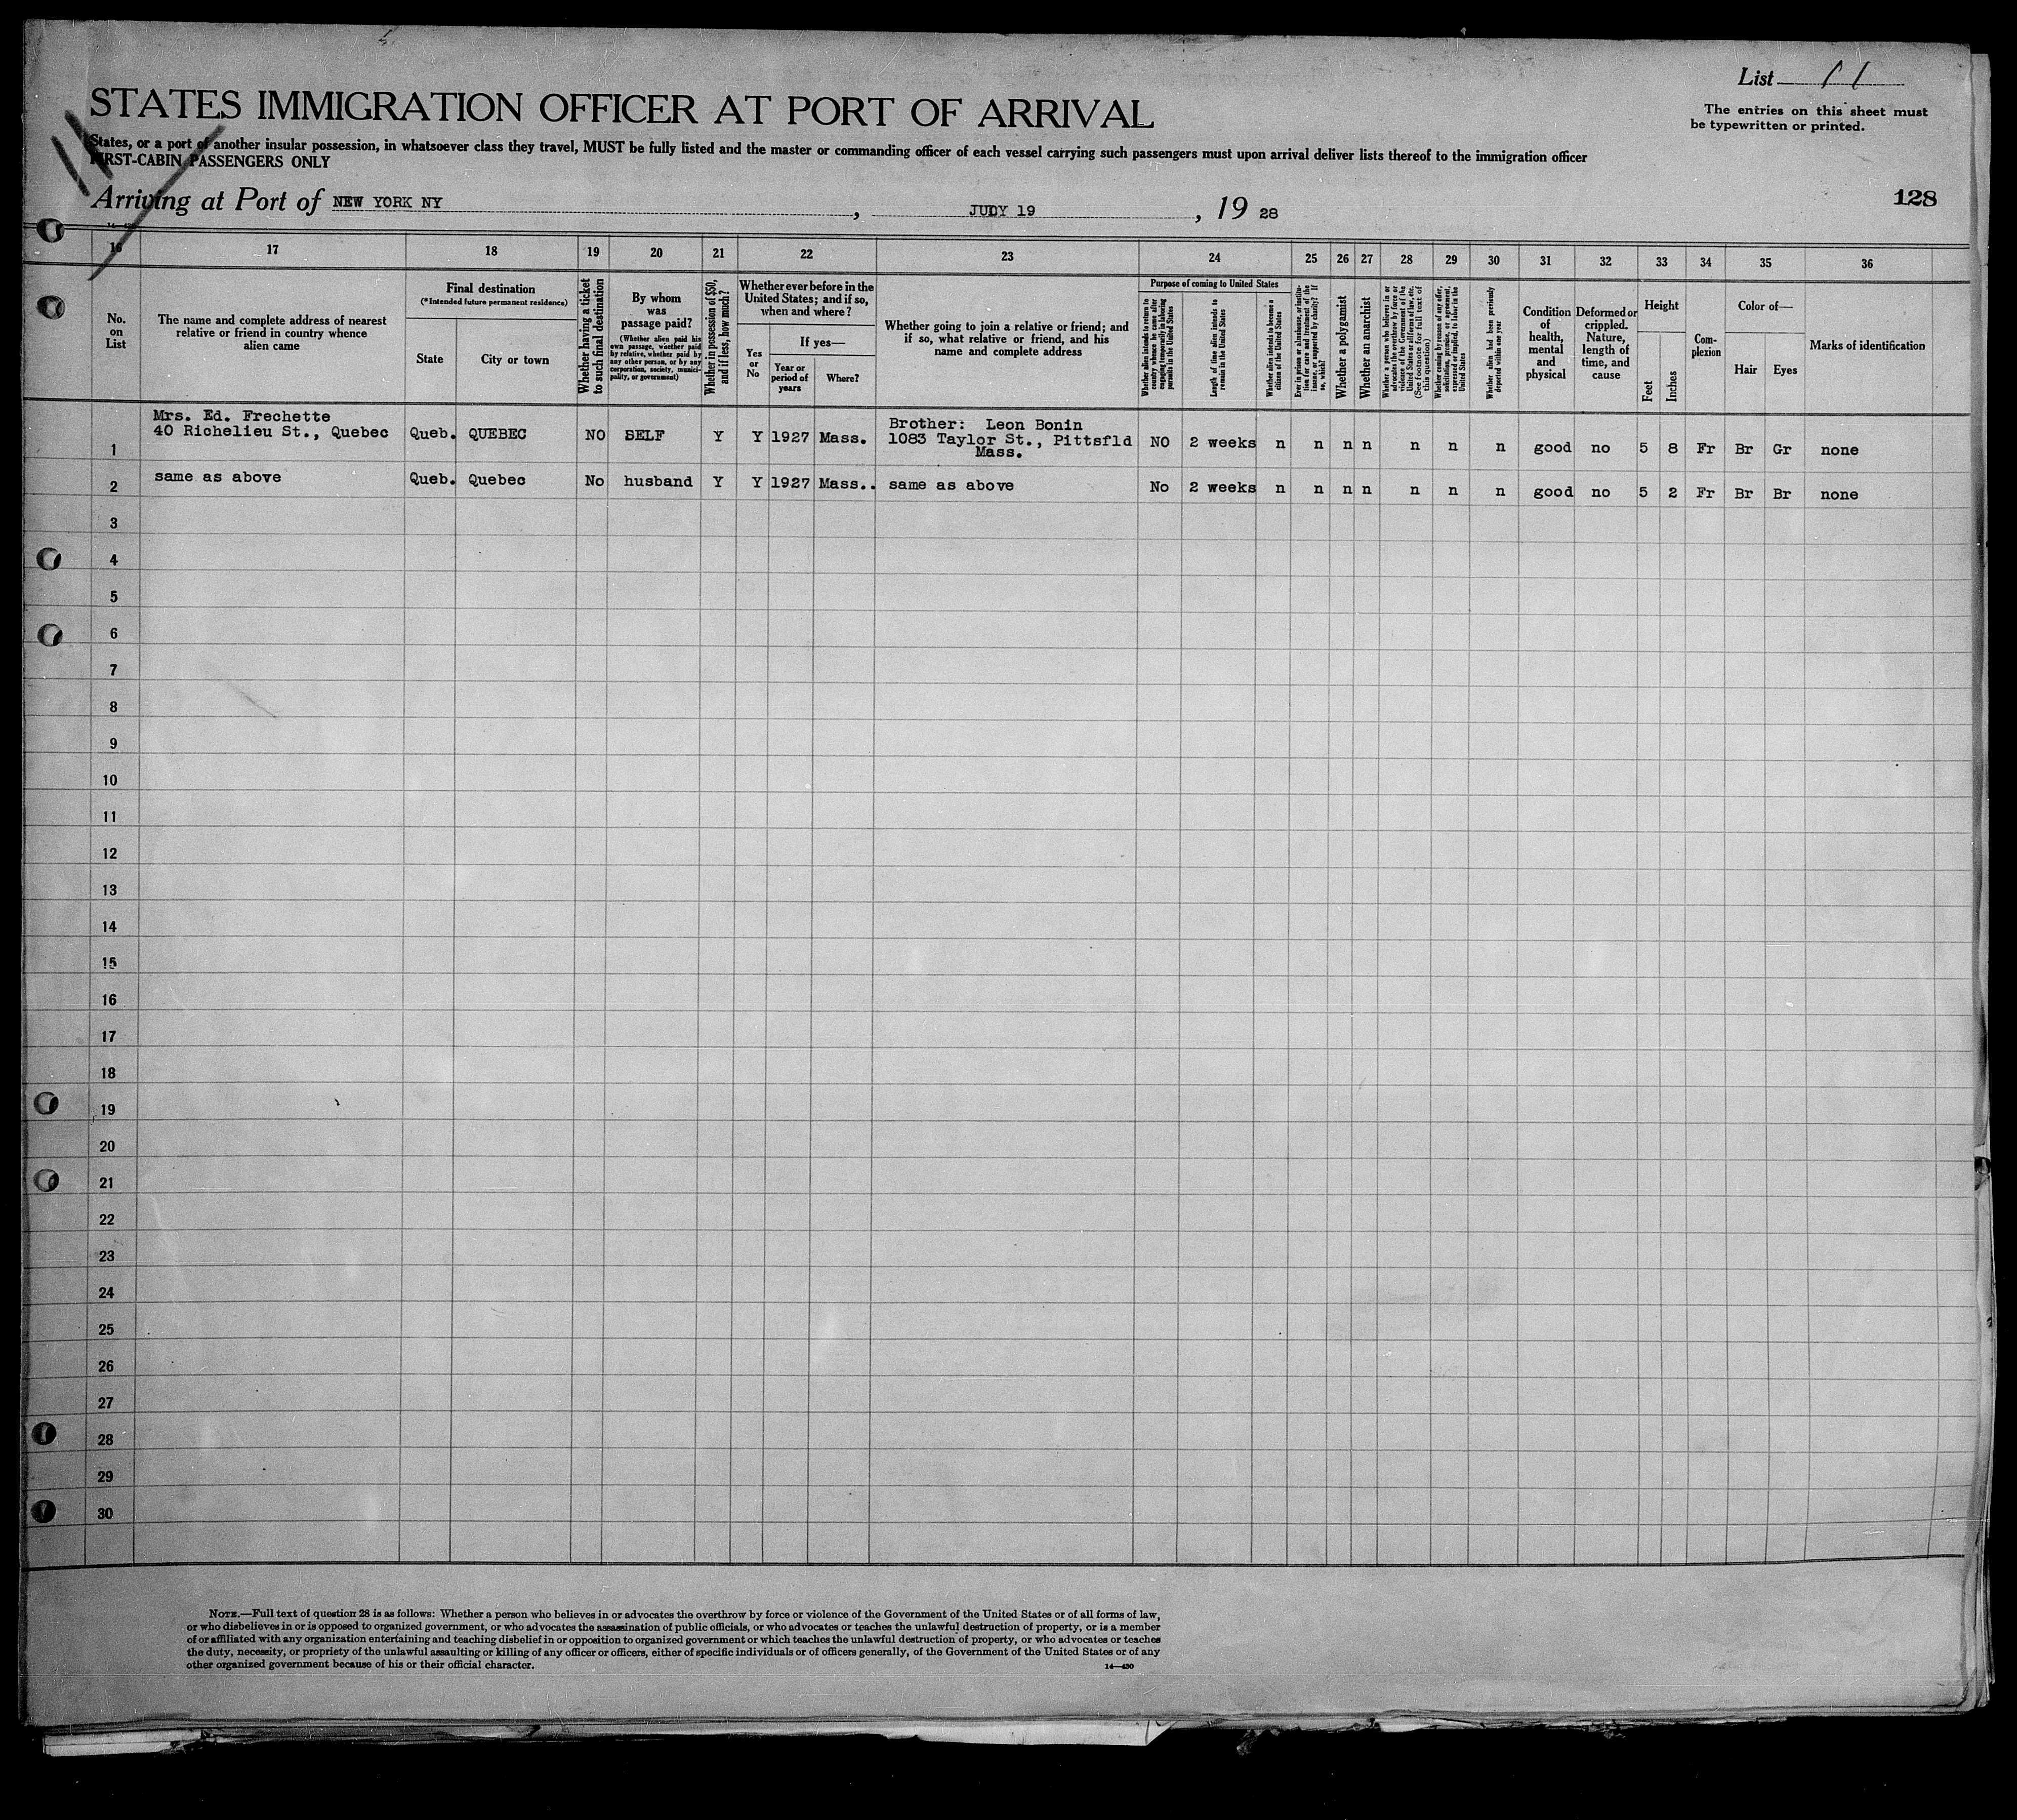 List 11
STATES IMMIGRATION OFFICER AT PORT OF ARRIVAL
The entries on this sheet must
be typewritten or printed.
States, or a port of another insular possession, in whatsoever class they travel, MUST be fully listed and the master or commanding officer of each vessel carrying such passengers must upon arrival deliver lists thereof to the immigration officer
FIRST-CABIN PASSENGERS ONLY
Arriving at Port of NEW YORK NY, JULY 19, 19 28
128
16 17 18 19 20 21 22 23 24 25 26 27 28 29 30 31 32 33 34 35 36
No.
on
List
The name and complete address of nearest
relative or friend in country whence
alien came
Final destination
(*Intended future permanent residence)
State
City or town
Whether having a ticket
to such final destination
By whom
was
passage paid?
(Whether alien paid his
own passage, whether paid
by relative, whether paid by
any other person, or by any
corporation, society, munici-
pality, or government)
Whether in possession of $50,
and if less, how much?
Whether ever before in the
United States; and if so,
when and where?
Yes
or
No
If yes—
Year or
period of
years
Where?
Whether going to join a relative or friend; and
if so, what relative or friend, and his
name and complete address
Purpose of coming to United States
Whether alien intends to return to
country whence he came after
engaging temporarily in laboring
pursuits in the United States
Length of time alien intends to
remain in the United States
Whether alien intends to become a
citizen of the United States
Ever in prison or almshouse, or institu-
tion for care and treatment of the
insane, or supported by charity? If
so, which?
Whether a polygamist
Whether an anarchist
Whether a person who believes in or
advocates the overthrow by force or
violence of the Government of the
United States or all forms of law, etc.
(See footnote for full text of
this question)
Whether coming by reason of any offer,
solicitation, promise, or agreement,
expressed or implied, to labor in the
United States
Whether alien had been previously
deported within one year
Condition
of
health,
mental
and
physical
Deformed or
crippled.
Nature,
length of
time, and
cause
Height
Feet
Inches
Com-
plexion
Color of—
Hair
Eyes
Marks of identification
Mrs. Ed. Frechette
Brother: Leon Bonin
1 40 Richelieu St., Quebec Queb. QUEBEC NO SELF Y Y 1927 Mass. 1083 Taylor St., Pittsfld NO 2 weeks n n n n n n n good no 5 8 Fr Br Gr none
Mass.
2 same as above Queb. Quebec No husband Y Y 1927 Mass.. same as above No 2 weeks n n n n n n n good no 5 2 Fr Br Br none
3
4
5
6
7
8
9
10
11
12
13
14
15
16
17
18
19
20
21
22
23
24
25
26
27
28
29
30
NOTE.—Full text of question 28 is as follows: Whether a person who believes in or advocates the overthrow by force or violence of the Government of the United States or of all forms of law,
or who disbelieves in or is opposed to organized government, or who advocates the assassination of public officials, or who advocates or teaches the unlawful destruction of property, or is a member
of or affiliated with any organization entertaining and teaching disbelief in or opposition to organized government or which teaches the unlawful destruction of property, or who advocates or teaches
the duty, necessity, or propriety of the unlawful assaulting or killing of any officer or officers, either of specific individuals or of officers generally, of the Government of the United States or of any
other organized government because of his or their official character.
14—430